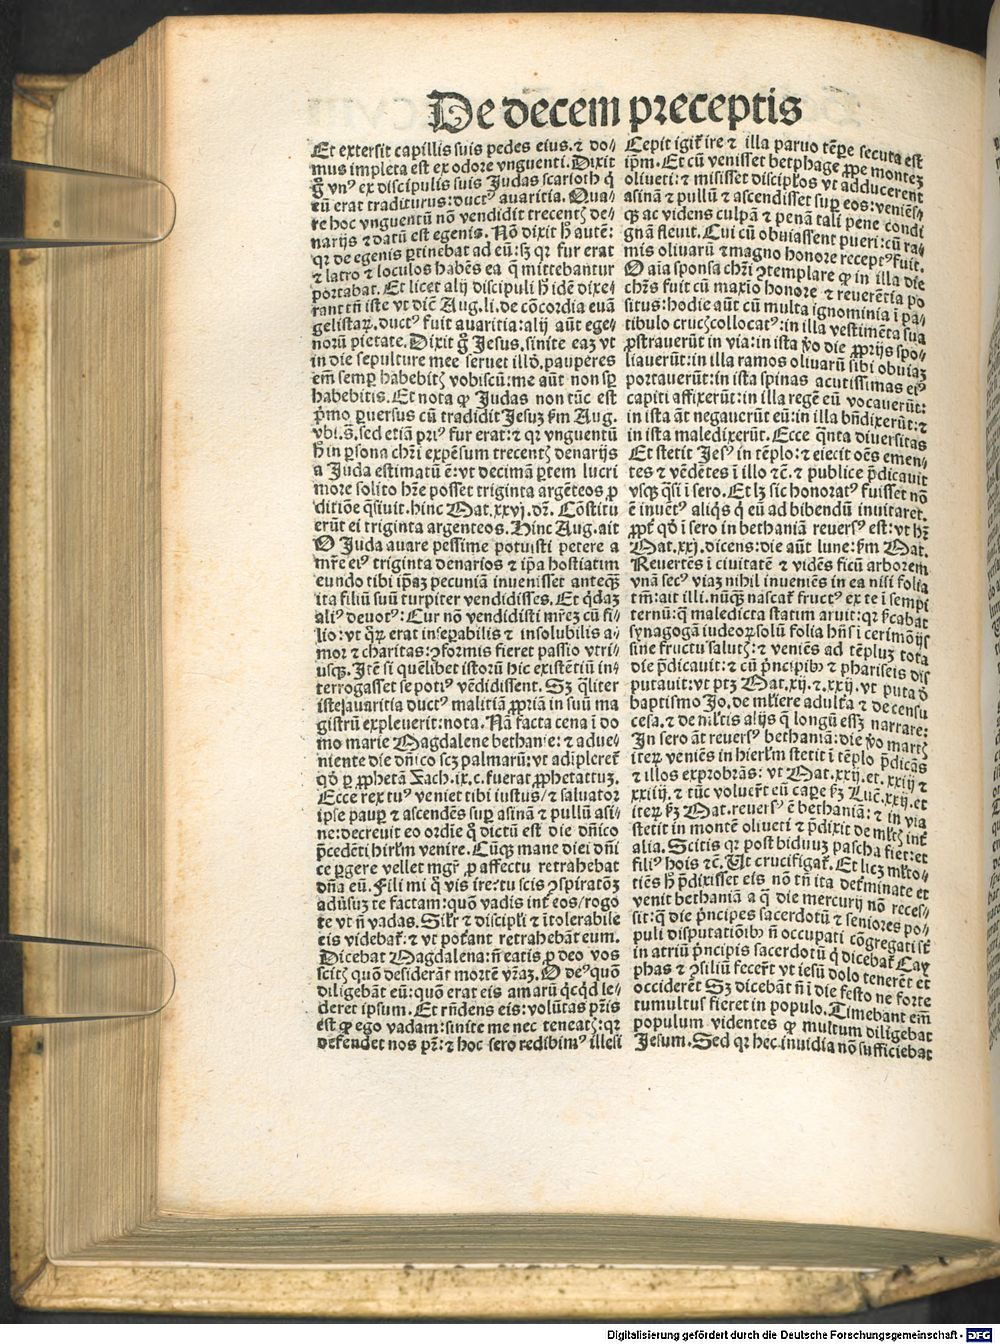 De decem preceptis
Et extersit capillis suis pedes eius. ⁊ do-
mus impleta est ex odore vnguenti. Dixit
g̊ vnꝰ ex discipulis suis Judas scarioth q̇
eū erat traditurus: ductꝰ auaritia. Qua-
re hoc vnguentū nō vendidit trecentꝭ de-
narijs ⁊ datū est egenis. Nō dixit h̄ autē:
qꝛ de egenis ꝑtinebat ad eū: sꝫ qꝛ fur erat
⁊ latro ⁊ loculos habēs ea q̄ mittebantur
portabat. Et licet alij discipuli h̄ idē dixe-
rant tn̄ iste vt dič Aug. li. de cōcordia euā
gelistaꝝ. ductꝰ fuit auaritia: alij aūt ege-
norū pietate. Dixit g̊ Jesus. sinite eaꝫ vt
in die sepulture mee seruet illđ. pauperes
em̄ semꝑ habebitꝭ vobiscū: me aūt non sꝑ
habebitis. Et nota ꝙ Judas non tūc est
p̄mo ꝑuersus cū tradidit Jesuꝫ ẜm Aug.
vbi. s̄. sed etiā pꝛiꝰ fur erat: ⁊ qꝛ vnguentū
h̄ in ꝑsona chꝛi expēsum trecentꝭ denarijs
a Juda estimatū ē: vt decimā ꝑtem lucri
more solito hr̄e posset triginta argēteos ꝑ
ditiōe q̄siuit. hinc Mat. xxvj. dꝛ. Cōstitu
erūt ei triginta argenteos. Hinc Aug. ait
O Juda auare pessime potuisti petere a
mr̄e eiꝰ triginta denarios ⁊ ip̄a hostiatim
eundo tibi ip̄aꝫ pecuniā inuenisset anteqꝫ
ita filiū suū turpiter vendidisses. Et q̇daꝫ
aliꝰ deuotꝰ: Cur nō vendidisti mr̄eꝫ cū fi-
lio: vt q̊ꝝ erat insepabilis ⁊ insolubilis a-
mor ⁊ charitas: ꝯformis fieret passio vtri-
usqꝫ. Itē si quēlibet istorū hic existētiū in-
terrogasset se potiꝰ vēdidissent. Sꝫ q̄liter
iste auaritia ductꝰ malitiā ꝓpriā in suū ma
gistrū expleuerit: nota. Nā facta cena ī do
mo marie Magdalene bethanie: ⁊ adue-
niente die dn̄ico scꝫ palmarū: vt adīpleret̄
qđ ꝑ ꝓphetā Zach. ix. c. fuerat ꝓphetattuꝫ.
Ecce rex tuꝰ veniet tibi iustus/ ⁊ saluator
ipse pauꝑ ⁊ ascendēs suꝑ asinā ⁊ pullū asi-
ne: decreuit eo ordīe q̊ dictū est die dn̄ico
p̄cedēti hirlm̄ venire. Cūqꝫ mane diei dn̄i
ce ꝑgere vellet mgr̄ ꝓ affectu retrahebat
dn̄a eū. Fili mi q̊ vis ire: tu scis ꝯspiratōꝫ
adūsuꝫ te factam: quō vadis int̄ eos/ rogo
te vt n̄ vadas. Silr̄ ⁊ discipl̄i ⁊ ītolerabile
eis videbat̄: ⁊ vt poťant retrahebāt eum.
Dicebat Magdalena: n̄ eatis ꝓ deo vos
scitꝭ quō desiderāt mortē vr̄aꝫ. O deꝰ quō
diligebāt eū: quō erat eis amarū q̇cq̇d le-
deret ipsum. Et rn̄dens eis: volūtas pr̄is
est ꝙ ego vadam: sinite me nec teneatꝭ: qꝛ
defendet nos pr̄: ⁊ hoc sero redibimꝰ illesi
Cepit igit̄ ire ⁊ illa paruo tēꝑe secuta est
ip̄m. Et cū venisset betphage ꝓpe monteꝫ
oliueti: ⁊ misisset discipl̄os vt adducerent
asinā ⁊ pullū ⁊ ascendisset suꝑ eos: veniēs-
qꝫ ac videns culpā ⁊ penā tali pene condi
gnā fleuit. Cui cū obuiassent pueri: cū ra-
mis oliuarū ⁊ magno honore receptꝰ fuit.
O aīa sponsa chꝛi ꝯtemplare ꝙ in illa die
chꝛs fuit cū maxīo honore ⁊ reuerētia po
situs: hodie aūt cū multa ignominia ī pa-
tibulo crucꝭ collocatꝰ: in illa vestimēta sua
ꝓstrauerūt in via: in ista ṽo die ꝓprijs spo-
liauerūt: in illa ramos oliuarū sibi obuiaꝫ
portauerūt: in ista spinas acutissimas eiꝰ
capiti affixerūt: in illa regē eū vocauerūt:
in ista āt negauerūt eū: in illa bn̄dixerūt: ⁊
in ista maledixerūt. Ecce q̄nta diuersitas
Et stetit Jesꝰ in tēplo: ⁊ eiecit oēs emen-
tes ⁊ vēdētes ī illo ⁊c̄. ⁊ publice p̄dicauit
vsqꝫ q̄si ī sero. Et lꝫ sic honoratꝰ fuisset nō
ē inuētꝰ aliq̇s q̇ eū ad bibendū inuitaret.
ꝓpť qđ ī sero in bethaniā reuersꝰ est: vt hꝛ
Mat. xxj. dicens: die aūt lune: ẜm Mat.
Reuertēs ī ciuitatē ⁊ vidēs ficū arborem
vnā secꝰ viaꝫ nihil inueniēs in ea nisi folia
tm̄: ait illi. nūqꝫ nascat̄ fructꝰ ex te ī sempi
ternū: q̄ maledicta statim aruit: qꝛ ẜcabat
synagogā iudeoꝝ solū folia hn̄s ī cerimōijs
sine fructu salutꝭ: ⁊ veniēs ad tēpluꝫ tota
die p̄dicauit: ⁊ cū p̄ncipibꝰ ⁊ phariseis dis
putauit: vt ptꝫ Mat. xij. ⁊. xxij. vt puta đ
baptismo Jo. de ml̄iere adulťa ⁊ de censu
cesa. ⁊ de ml̄tis alijs q̄ longū essꝫ narrare:
In sero āt reuersꝰ bethaniā: die ṽo martꝭ
iteꝝ veniēs in hierl̄m stetit ī tēplo p̄dicās
⁊ illos exprobrās: vt Mat. xxij. et. xxiij ⁊
xxiiij. ⁊ tūc voluer̄t eū caꝑe ẜꝫ Luč. xxij. et
iteꝝ ẜꝫ Mat. reuersꝰ ē bethaniā: ⁊ in via
stetit in montē oliueti ⁊ p̄dixit de ml̄tꝭ int̄
alia. Scitis qꝛ post biduuꝫ pascha fiet: et
filiꝰ hoīs ⁊c̄. Vt crucifigat̄. Et licꝫ ml̄to-
tiēs h̄ p̄dixisset eis nō tn̄ ita deťminate et
venit bethaniā a q̄ die mercurij nō reces-
sit: q̄ die p̄ncipes sacerdotū ⁊ seniores po-
puli disputatiōibꝰ n̄ occupati cōgregati st̄
in atriū p̄ncipis sacerdotū q̇ dicebat̄ Cay
phas ⁊ ꝯsiliū fecer̄t vt iesū dolo tenerēt et
occiderēt Sꝫ dicebāt n̄ ī die festo ne forte
tumultus fieret in populo. Timebant em̄
populum videntes ꝙ multum diligebat
Jesum. Sed qꝛ hec inuidia nō sufficiebat
Digitalisierung gefördert durch die Deutsche Forschungsgemeinschaft - DFG